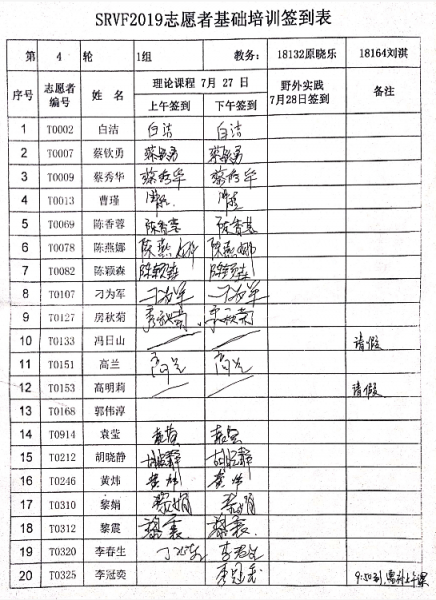 SRVF2019志愿者基础培训签到表
第 4 轮 1组 教务： 18132原晓乐 18164刘淇
序号 志愿者编号 姓 名 理论课程 7月 27 日 野外实践 7月28日签到 备注
上午签到 下午签到
1 T0002 白洁 白洁 白洁
2 T0007 蔡钦勇 蔡钦勇 蔡钦勇
3 T0009 蔡秀华 蔡秀华 蔡秀华
4 T0013 曹瑾
5 T0069 陈香蓉 陈香蓉 陈香蓉
6 T0078 陈燕娜 陈燕娜 陈燕娜
7 T0082 陈颖森 陈颖森 陈颖森
8 T0107 刁为军 刁为军 刁为军
9 T0127 房秋菊 房秋菊 房秋菊
10 T0133 冯日山 请假
11 T0151 高兰 高兰 高兰
12 T0153 高明莉 请假
13 T0168 郭伟淳
14 T0914 袁莹 袁莹 袁莹
15 T0212 胡晓静 胡晓静 胡晓静
16 T0246 黄炜 黄炜 黄炜
17 T0310 黎娟 黎娟 黎娟
18 T0312 黎震 黎震 黎震
19 T0320 李春生 李春生
20 T0325 李冠奕 李冠奕 9:50到,需补上午课